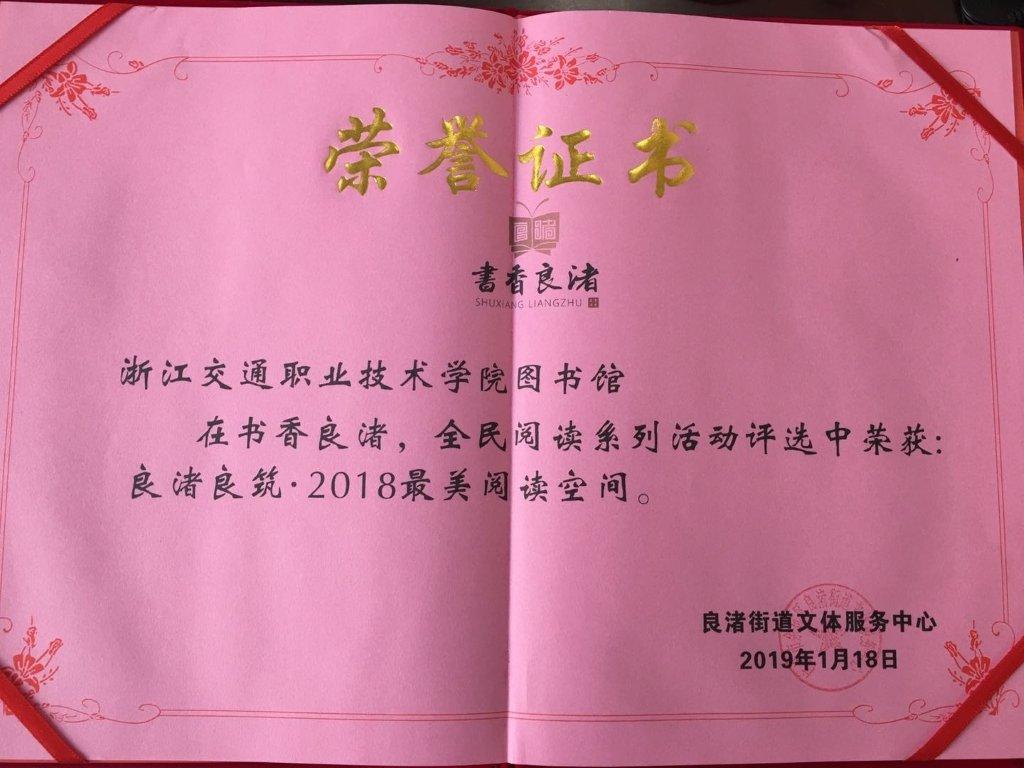 荣誉证书
良渚
書香良渚
SHUXIANG LIANGZHU
浙江交通职业技术学院图书馆
在书香良渚，全民阅读系列活动评选中荣获：
良渚良筑·2018最美阅读空间。
良渚街道文体服务中心
2019年1月18日